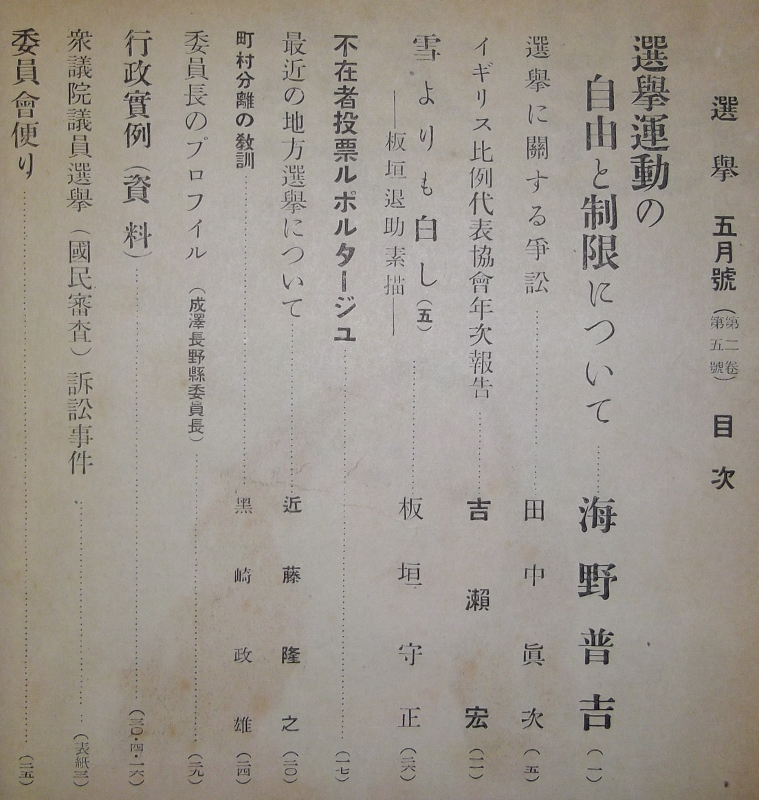 選擧 五月號（第二卷第五號） 目次
選擧運動の
自由と制限について……海野普吉（一）
選擧に關する爭訟……田中眞次（五）
イギリス比例代表協會年次報告……吉瀨宏（一一）
雪よりも白し（五）
―板垣退助素描―……板垣守正（二六）
不在者投票ルポルタージュ……（一七）
最近の地方選擧について……近藤隆之（二〇）
町村分離の敎訓……黑崎政雄（二四）
委員長のプロフイル（成澤長野縣委員長）……（二九）
行政實例（資料）……（三〇・四・一六）
衆議院議員選擧（國民審査）訴訟事件……（表紙三）
委員會便り……（二五）